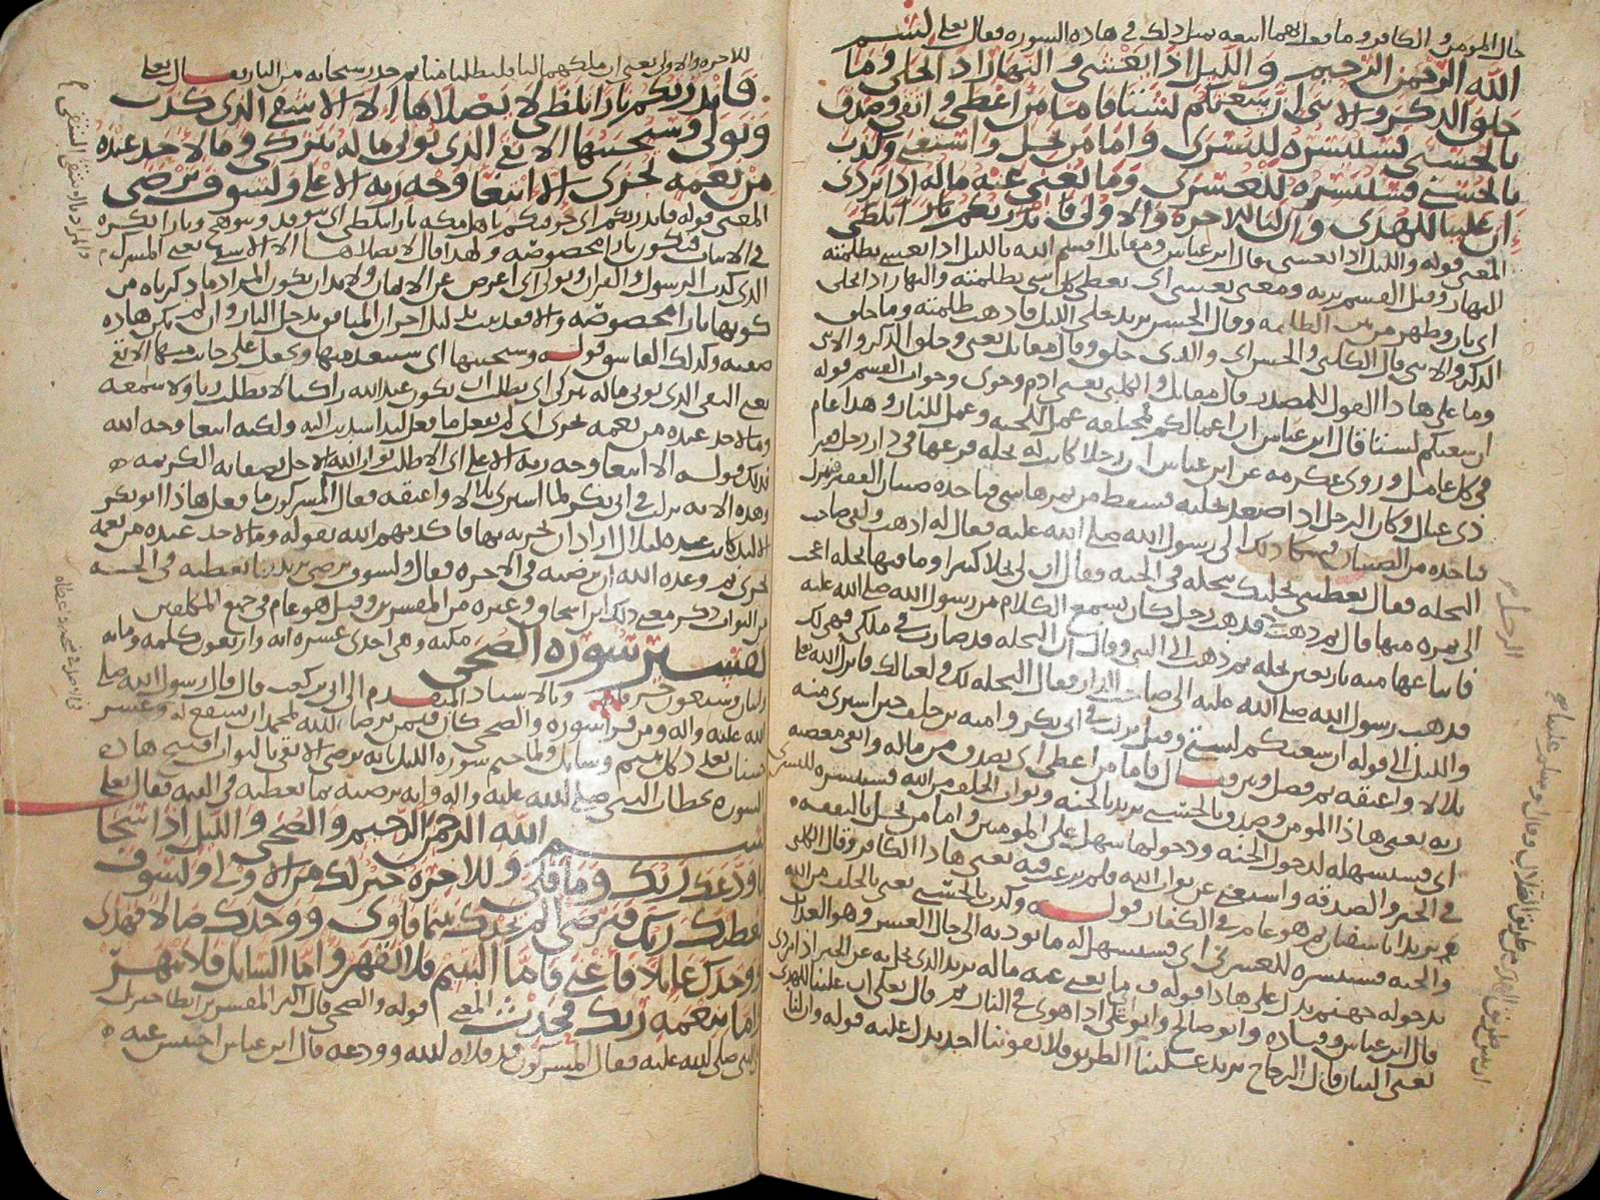 حال المومن والكافر وما فعل بهما اتبعه بمثل ذلك في هاذه السوره فقال تعلى بسم
الله الرحمن الرحيم والليل اذا يغشى والنهار اذا تجلى وما
خلق الذكر والانثى ان سعيكم لشتى فاما من اعطى واتقى وصدق
بالحسنى فسنيسره لليسرى واما من بخل واستغنى وكذب
بالحسنى فسنيسره للعسرى وما يغني عنه ماله اذا تردى
ان علينا للهدى وان لنا للاخره والاولى فانذرتكم نارا تلظى
المعنى قوله والليل اذا يغشى قال ابن عباس ومقاتل اقسم الله بالليل اذا يغشى بظلمته
النهار وقيل القسم بربه ومعنى يغشى اي يغطي كل شي بظلمته والنهار اذا تجلى
اي بان وظهر من بين الظلمه وقال الحسن يريد جلى الليل فاذهب ظلمته وما خلق
الذكر والانثى قال الكلبي والحسن اي والذي خلق وقال مقاتل يعني وخلق الذكر والانثى
وما على هاذا القول للمصدر قال مقاتل والكلبي يعني ادم وحوى وجواب القسم قوله
ان سعيكم لشتى قال ابن عباس ان اعمالكم مختلفه عمل للجنه وعمل للنار وهذا عام
في كل عامل وروى عكرمه عن ابن عباس ان رجلا كانت له نخله فرعها في دار رجل فقير
ذي عيال وكان الرجل اذا صعد نخلته فسقط من ثمرها شي فياخذه صبيان الفقير فينزل
فياخذه من الصبيان فشكا ذلك الى رسول الله صلى الله عليه فقال له اذهب ولقي صاحب
النخله فقال تعطيني نخلتك بنخله في الجنه فقال ان لي نخلا كثيرا وما فيها نخله اعجب
الي ثمره منها قال ثم ذهب فذهب رجل كان يسمع الكلام من رسول الله صلى الله عليه
فابتاعها منه باربعين نخله ثم ذهب الى النبي وقال ان النخله قد صارت في ملكي فهي لك
فذهب رسول الله صلى الله عليه الى صاحب الدار فقال النخله لك ولعيالك فانزل الله تعلى
والليل الى قوله ان سعيكم لشتى وقيل نزلت في ابي بكر واميه بن خلف حين اشترى منه
بلالا واعتقه ثم فصل وبين فقال فاما من اعطى اي تصدق من ماله واتقى معصيه
ربه يعني هاذا المومن وصدق بالحسنى يريد بالجنه وثواب الخلف من الله فسنيسره لليسرى
اي فسنسهله لدخول الجنه ودخولها سهل على المومنين واما من بخل بالنفقه
في الخير والصدقه واستغنى عن ثواب الله فلم يرغب فيه يعني هاذا الكافر وقال الكلبي
يريد ابا سفيان ثم هو عام في الكفار قوله وكذب بالحسنى يعني بالخلف من الله
والجنه فسنيسره للعسرى اي فسنسهل له ما يوديه الى حال العسر وهو العذاب
بدخوله جهنم يدل على هاذا قوله وما يغني عنه ماله يريد الذي بخل به عن الخير اذا تردى
قال ابن عباس وقتاده وابو صالح وابو علي اذا هوى في النار ثم قال تعلى ان علينا للهدى
يعني البيان قال الزجاج يريد علينا الطريق فلا يفوتنا احد يدل عليه قوله وان لنا
للاخره والاولى يعني ان ملكهما لنا فليطلبا منا ثم حذر سبحانه من النار فقال تعلى
فانذرتكم نارا تلظى لا يصلاها الا الاشقى الذي كذب
وتولى وسيجنبها الاتقى الذي يوتي ماله يتزكى وما لاحد عنده
من نعمه تجزى الا ابتغا وجه ربه الاعلى ولسوف يرضى
المعنى قوله فانذرتكم اي خوفتكم يا اهل مكه نارا تلظى اي تتوقد وتتوهج ونارا نكره
في الاثبات فتكون نارا مخصوصه ولهذا قال لا يصلاها الا الاشقى يعني المشرك
الذي كذب الرسول والقران وتولى اي اعرض عن الايمان ولا بد ان يكون المراد ما ذكرناه من
كونها نارا مخصوصه
وكذلك الفاسق قوله وسيجنبها اي سيبعد منها ويجعل على جانب منها الاتقى
يعني التقي الذي يوتي ماله يتزكى اي يطلب ان يكون عند الله زاكيا لا يطلب ريا ولا سمعه
وما لاحد عنده من نعمه تجزى اي لم يفعل ما فعل ليد اسديت اليه ولكنه ابتغا وجه الله
فذلك قوله الا ابتغا وجه ربه الاعلى اي الا طلب ثواب الله الاجل بصفاته الكريمه
وهذه الايه نزلت في ابي بكر لما اشترى بلالا واعتقه فقال المشركون ما فعل هاذا ابو بكر
الا ليد كانت عنده لبلال اراد ان يجزيه بها فاكذبهم الله بقوله وما لاحد عنده من نعمه
تجزى ثم وعده الله ان يرضيه في الاخره فقال ولسوف يرضى يريد بما يعطيه في الجنه
من الثواب ذكر معنى ذلك ابن اسحاق وغيره من المفسرين وقيل هو عام في جميع المكلفين
تفسير سوره الضحى مكيه وهي احدى عشره ايه واربعون كلمه ومايه
واثنان وسبعون حرفا وبالاسناد المتقدم الى ابي بن كعب قال قال رسول الله صلى
الله عليه واله ومن قرا سوره والضحى كان فيمن يرضاه الله لمحمد ان يشفع له وعشر
حسنات بعدد كل يتيم وسايل ولما ختم سوره الليل بانه يرضي الاتقى بالثواب افتتح هاذه
السوره بخطاب النبي صلى الله عليه واله وانه يرضيه بما يعطيه في الجنه فقال تعلى
بسم الله الرحمن الرحيم والضحى والليل اذا سجا
ما ودعك ربك وما قلى وللاخره خير لك من الاولى ولسوف
يعطيك ربك فترضى الم يجدك يتيما فاوى ووجدك ضالا فهدى
ووجدك عايلا فاغنى فاما اليتيم فلا تقهر واما السايل فلا تنهر
واما بنعمه ربك فحدث المعنى قوله والضحى قال اكثر المفسرين ابطا جبريل
على النبي صلى الله عليه فقال المشركون قد قلاه الله وودعه قال ابن عباس احتبس عنه